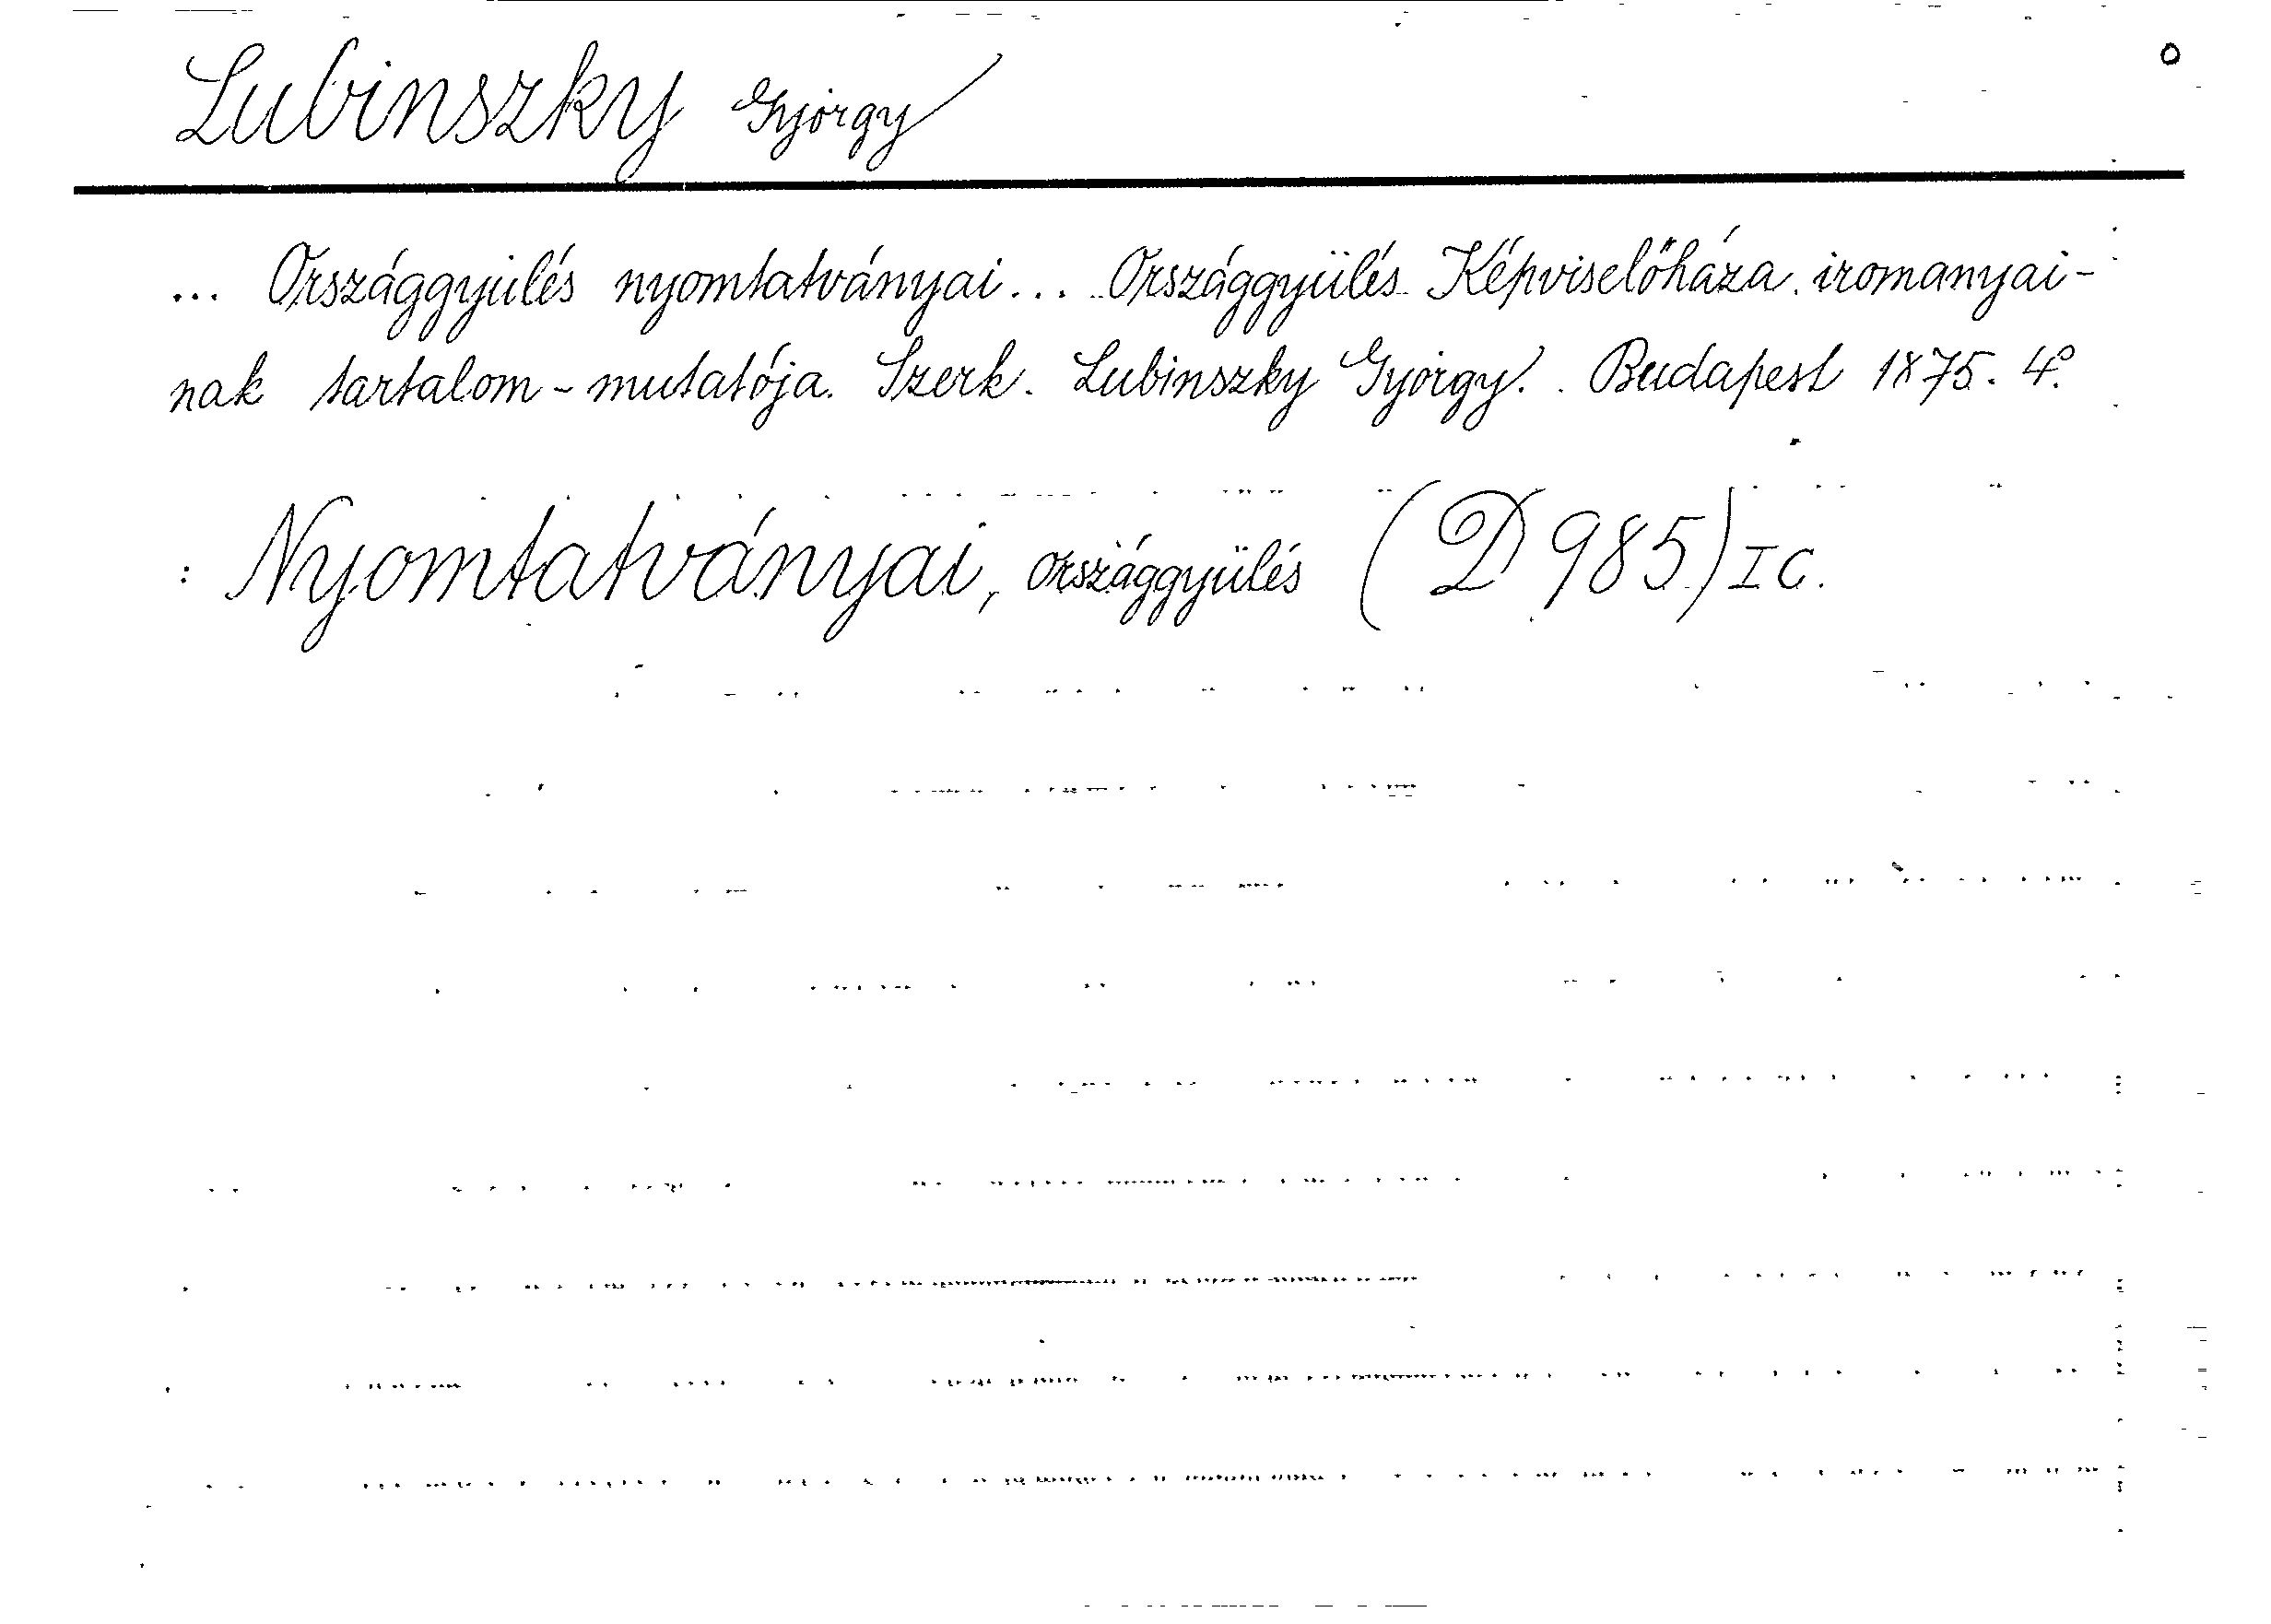 Lubinszky György
... Országgyülés nyomtatványai... Országgyülés Képviselőháza iromanyai-
nak tartalom-mutatója. Szerk. Lubinszky György. Budapest 1875. 4°.
: Nyomtatványai, országgyülés (D 985) I C.